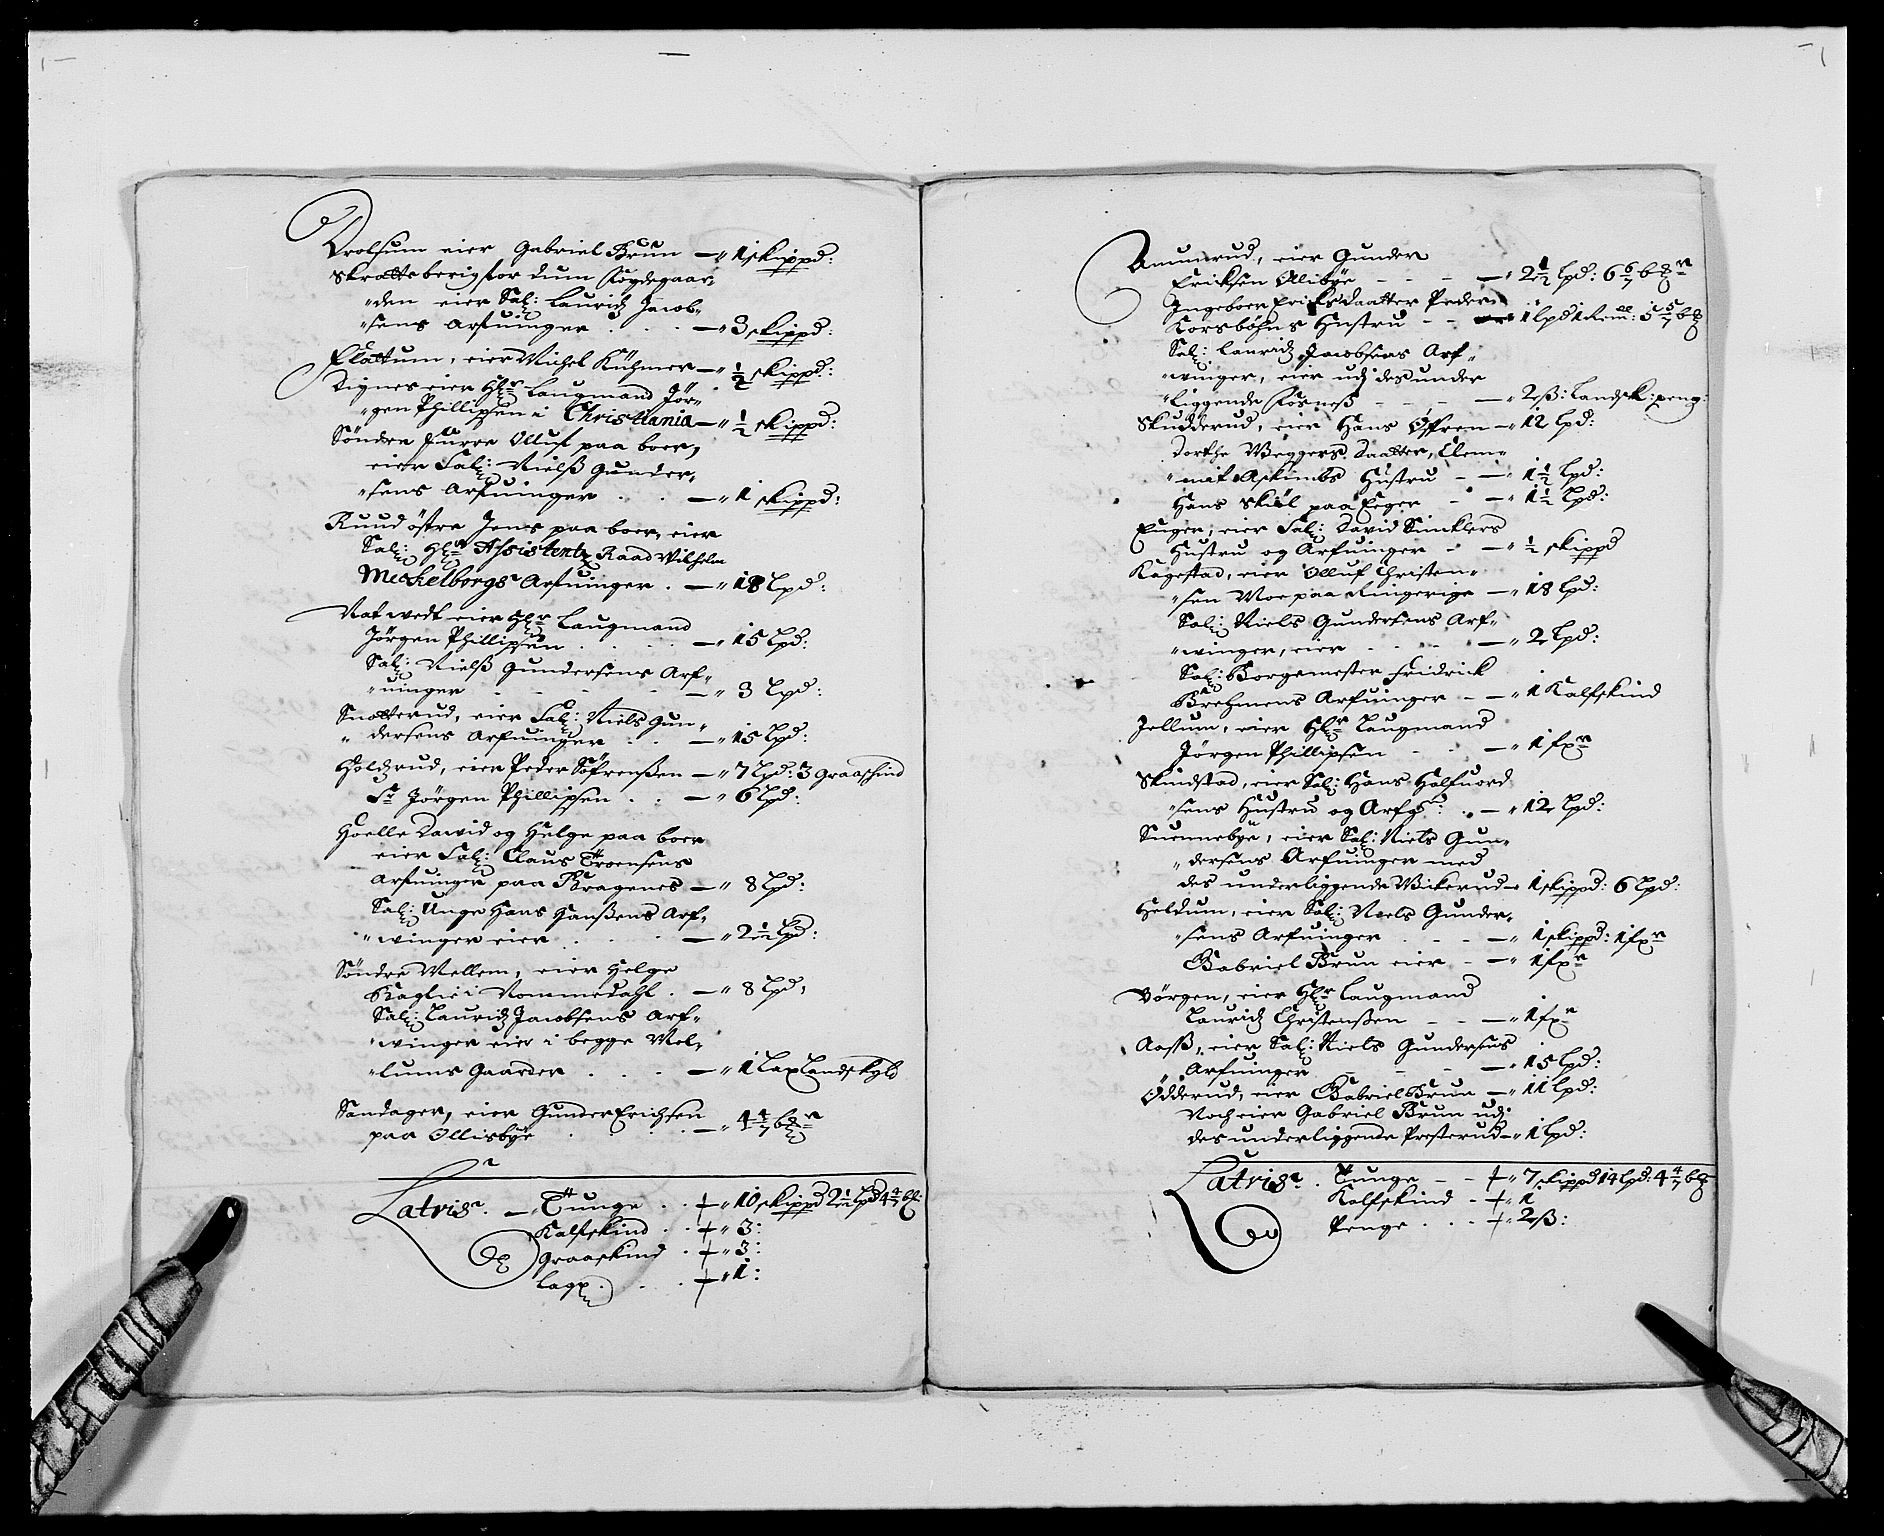 Drolsum eier Gabriel Brun — „ 1 skippd:
Skratteberig for dum Kogdegaar:
„den eier Sal: Lauridz Jacob„
„sens Arfuinger . . . — „ 3 skippd:
Flattum, eier Michel Kühmer — „ ½ skippd:
Rignes eier Hl:r Laugmand Jör„
„gen Phillipsen i Christiania — „ ½ skippd:
Söndre Furre Olluf paa boer,
eier Sal: Nielß Gunder„
„sens Arfuinger . . — „ 1 skippd:
Ruud östre Jens paa boer, eier
Sal: Hl:r Assistentz Raad Vilhelm
Meckelborgs Arfuinger . — „ 18 Lpd:
Natwedt eier Hl:r Laugmand
Jörgen Phillipsen . . . . — „ 15 Lpd:
Sal: Nielß Gundersens Arf„
„uinger — „ 3 Lpd:
Snatterud, eier Sal: Niels Gun„
„ dersens Arfuinger . . — „ 15 Lpd:
Holdzrud, eier Peder Söfrenßen — „ 7 Lpd: 3 graaskind
Sr Jörgen Phillipsen . . — „ 6 Lpd:
Hoelle David og Helge paa boer
eier Sal: Claus Troensens
Arfuinger paa Bragenes — „ 8 Lpd:
Sal: Unge Hans Hanßens Arf„
„winger eier . . . — „ 2½ Lpd:
Söndre Mellem, eier Helge
Kaglie i Nommedahl . — „ 8 Lpd,
Sal: Lauridz Jacobsens Arf„
„winger eier i begge Mel„
„lums Gaarder . . . — „ 1 Lax Landskyld
Sandager, eier Gunder Erichsen
paa Ollisbye . . . . — „ 4 4/7 bz:r
Latris: — „ Tunge . . + „ 10 skippd 2½ Lpd 4 4/7 bz:
Kalfskind . . + „ 3:
Graaskind . + „ 3:
Lax . . . + „ 1:
Amunrud, eier Gunder
Eriksen Ollibye - - - — „ 2½ Lpd: 6 6/7 bz:r
Ingeboer Ericksdaatter Peder
Korsböhns Hustru - - „ 1 Lpd 1 Rem: 5 5/7 bz
Sal: Lauridz Jacobsens Arf„
„winger, eier udj des under
„liggende Kösneß - - - — „ 2 ß: Landsk: peng:
Skudderud, eier Hans Öfren — „ 12 Lpd:
Dorthe Weggers Daatter, Clem„
„mit Askimbs Hustru - — „ 1½ Lpd:
Hans Skiöl paa Eeger - - — „ 1½ Lpd:
Enger, eier Sal: David Sinklers
Hustru og Arfuinger - — „ ½ skippd
Kagestad, eier Olluf Christen„
„sen Moe paa Ringerige — „ 18 Lpd:
Sal: Niels Gundersens Arf„
„winger, eier . . . — „ 2 Lpd:
Sal: Borgemester Fridrick
Brehmens Arfuinger - — „ 1 Kalfskind
Jellum, eier Hl:r Laugmand
Jörgen Phillipsen - - — „ 1 fx:r
Skindstad, eier Sal: Hans Halfuord
„sens Hustru og Arfg: . — „ 12 Lpd:
Suennebye, eier Sal: Niels Gun„
„dersens Arfuinger med
des underliggende Wikerud — 1 skippd: 6 Lpd:
Heldum, eier Sal: Niels Gunder„
„sens Arfuinger . . . — „ 1 skippd: 1 fx:r
Gabriel Brun eier - — „ 1 fx:r
Börgen, eier Hl:r Laugmand
Lauridz Christenßen - - — „ 1 fx:r
Aasß, eier Sal: Niels Gundersens
„ Arfuinger - - - — „ 15 Lpd:
Ödderud, eier Gabriel Brun — „ 11 Lpd:
Noch eier Gabriel Brun udj
des underliggende Presterud — „ 1 Lpd:
Latris: . Tunge - - + „ 7 skippd 14 Lpd: 4 4/7 bz
Kalfskind - + „ 1
Penge . . . + „ 2 ß: